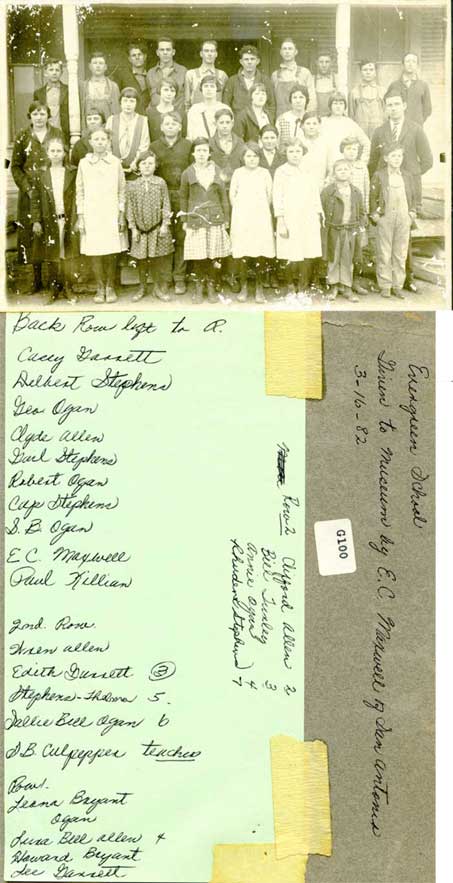 Back Row left to R.
Casey Garrett
Delbert Stephens
Geo Ogan
Clyde Allen
Garl Stephens
Robert Ogan
Cap Stephens
S. B. Ogan
E C. Maxwell
Paul Killian
2nd. Row
allen
Edith Garrett 3
Stephens - Thelma 5.
Sallie Bell Ogan 6
S.B. Culpepper teacher
Row 1.
Leona Bryant
Ogan
Luna Bell allen 4
Howard Bryant
Lee Garrett
Row 2 Clifford Allen 2
Bill 3
Annie Ogan 4
Stephens 7
G100
Evergreen School
Given to Museum by E. C. Maxwell of San Antonio
3-16-82